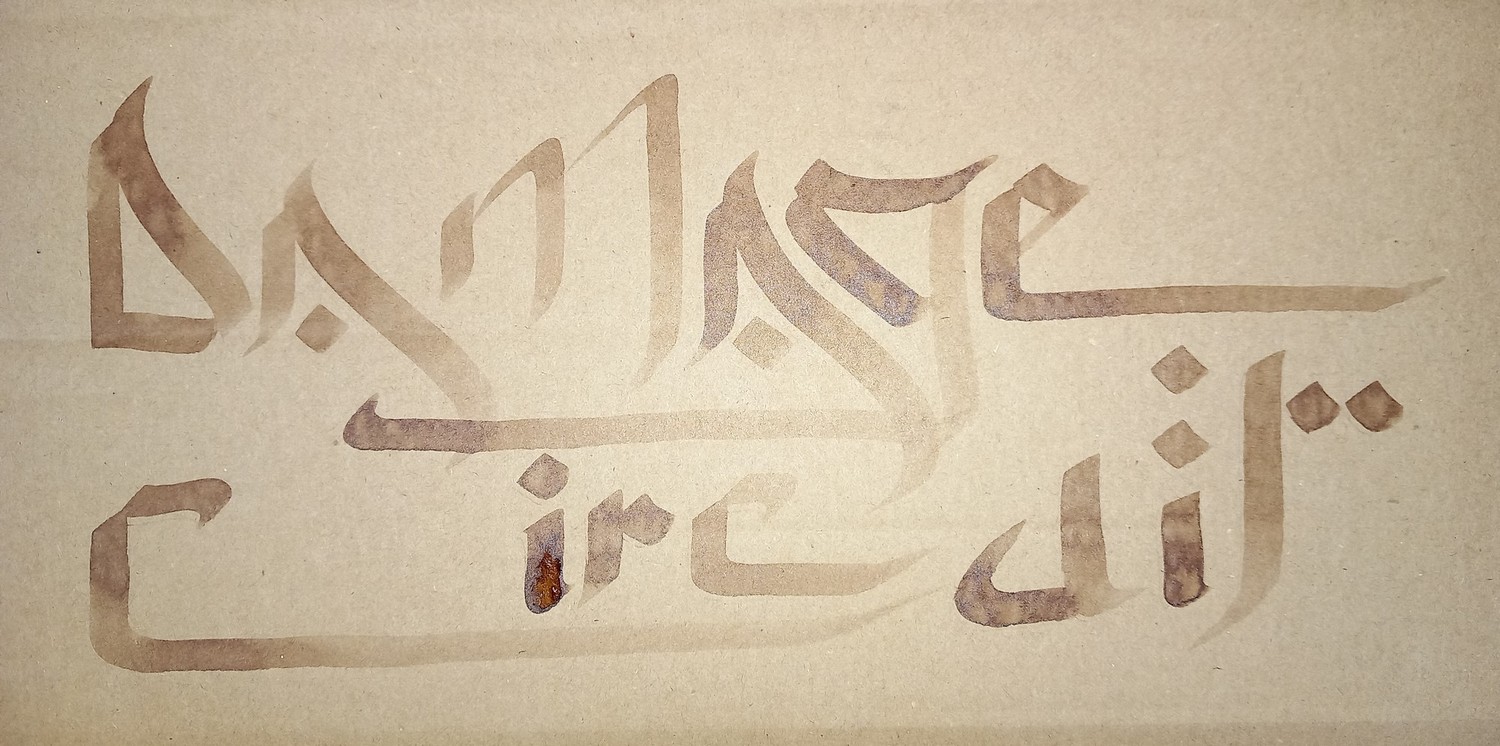 Damage
circuit